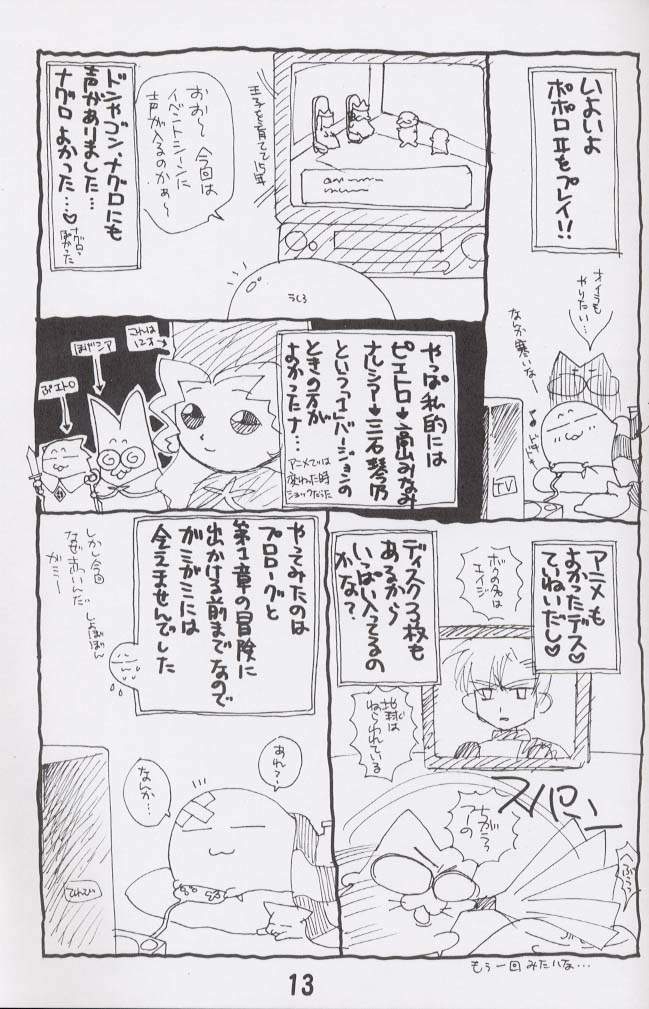 いよいよ
ポポロⅡをプレイ!!
オイラも
やりたい…
なんか寒いなー
TV
王子を育てて15年
おお〜今回は
イベントシーンに
声が入るのかぁ〜
うしろ
ドンやゴン、ナグロにも
声がありました…
ナグロよかった…♡
ナグロ
よかった
やっぱ私的には
ピエトロ→高山みなみ
ナルシア→三石琴乃
というV1.バージョンの
ときの方が
よかったナ…
アニメでは
変わった時
ショックだった
これは
12才→
ぷエトロ
アニメも
よかったデス♡
ていねいだし♡
ボクの名は
エイジ
地球は
ねらわれている
ちがうっ
スパパーン
もう一回みたいな…
ディスク3枚も
あるから
いっぱい入ってるの
かな?
やってみたのは
プロローグと
第1章の冒険に
出かける前までなので
ガミガミには
会えませんでした
しかし今回
なぜ赤いんだ
ガミー
しょぼぼん
あれ?
なんか…
てれび
13